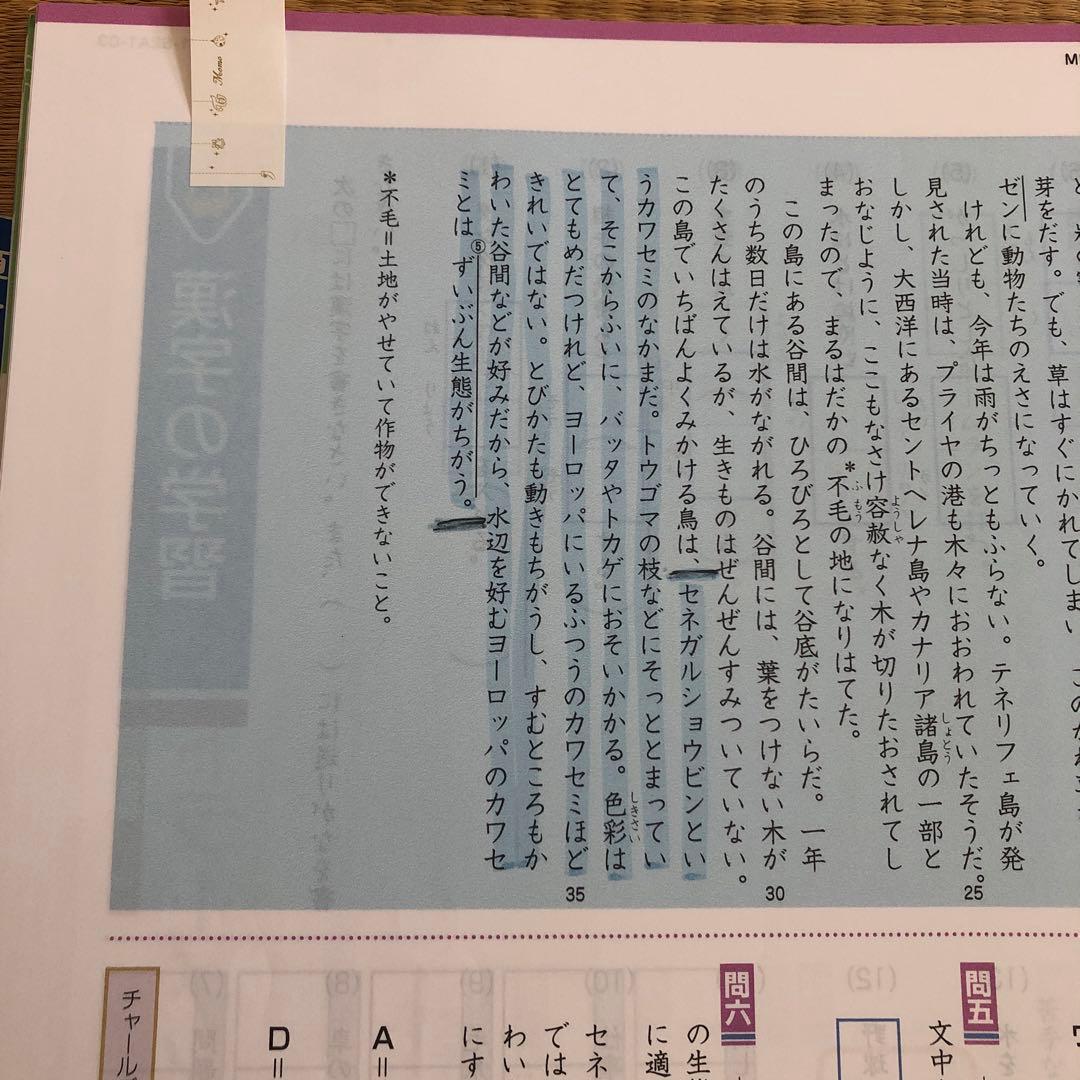 Memo
芽をだす。でも、草はすぐにかれてしまい
ゼンに動物たちのえさになっていく。
けれども、今年は雨がちっともふらない。テネリフェ島が発
見された当時は、プライヤの港も木々におおわれていたそうだ。
しかし、大西洋にあるセントヘレナ島やカナリア諸島の一部と
おなじように、ここもなさけ容赦なく木が切りたおされてし
まったので、まるはだかの*不毛の地になりはてた。
この島にある谷間は、ひろびろとして谷底がたいらだ。一年
のうち数日だけは水がながれる。谷間には、葉をつけない木が
たくさんはえているが、生きものはぜんぜんすみついていない。
この島でいちばんよくみかける鳥は、セネガルショウビンとい
うカワセミのなかまだ。トウゴマの枝などにそっととまってい
て、そこからふいに、バッタやトカゲにおそいかかる。色彩は
とてもめだつけれど、ヨーロッパにいるふつうのカワセミほど
きれいではない。とびかたも動きもちがうし、すむところもか
わいた谷間などが好みだから、水辺を好むヨーロッパのカワセ
ミとは⑤ずいぶん生態がちがう。
*不毛=土地がやせていて作物ができないこと。
しょとう
ようしゃ
ふもう
しきさい
25
30
35
問五
文中
問六
の生
に適
セネ
では
わい
にす
A=
D=
チャールズ